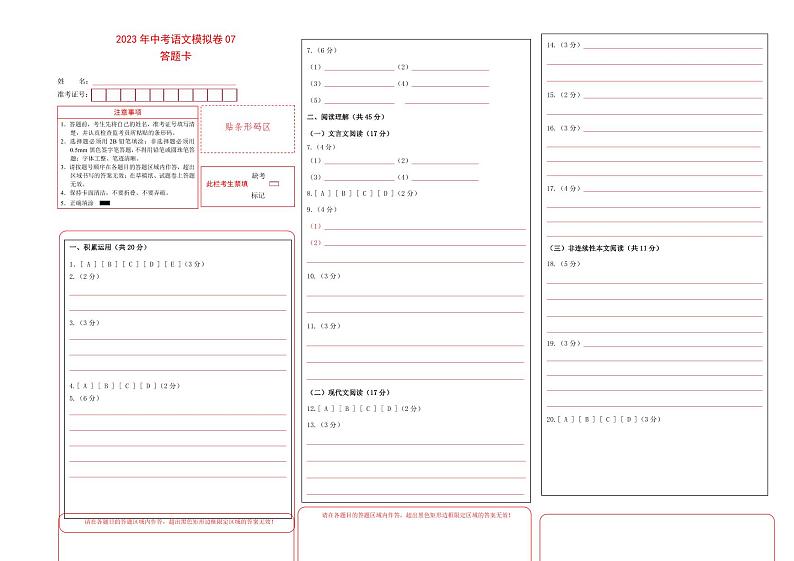 2023 年中考语文模拟卷 07
答题卡
姓 名:
准考证号:
注意事项
1. 答题前,考生先将自己的姓名,准考证号填写清
楚,并认真检查监考员所粘贴的条形码。
2. 选择题必须用 2B 铅笔填涂;非选择题必须用
0.5mm 黑色签字笔答题,不得用铅笔或圆珠笔答
题;字体工整、笔迹清晰。
3. 请按题号顺序在各题目的答题区域内作答,超出
区域书写的答案无效;在草稿纸、试题卷上答题
无效。
4. 保持卡面清洁,不要折叠、不要弄破。
5. 正确填涂
贴条形码区
此栏考生禁填
缺考
标记
一、积累运用(共 20 分)
1.[ A ] [ B ] [ C ] [ D ] [ E ](3 分)
2.(2 分)
3.(3 分)
4.[ A ] [ B ] [ C ] [ D ](2 分)
5.(6 分)
请在各题目的答题区域内作答,超出黑色矩形边框限定区域的答案无效!
7.(6 分)
(1) (2)
(3) (4)
(5)
二、阅读理解(共 45 分)
(一)文言文阅读(17 分)
7.(4 分)
(1) (2)
(3) (4)
8.[ A ] [ B ] [ C ] [ D ](2 分)
9.(4 分)
(1)
(2)
10.(3 分)
11.(3 分)
(二)现代文阅读(17 分)
12.[ A ] [ B ] [ C ] [ D ](2 分)
13.(3 分)
请在各题目的答题区域内作答,超出黑色矩形边框限定区域的答案无效!
14.(3 分)
15.(2 分)
16.(3 分)
17.(4 分)
(三)非连续性本文阅读(共 11 分)
18.(5 分)
19.(3 分)
20.[ A ] [ B ] [ C ] [ D ](3 分)